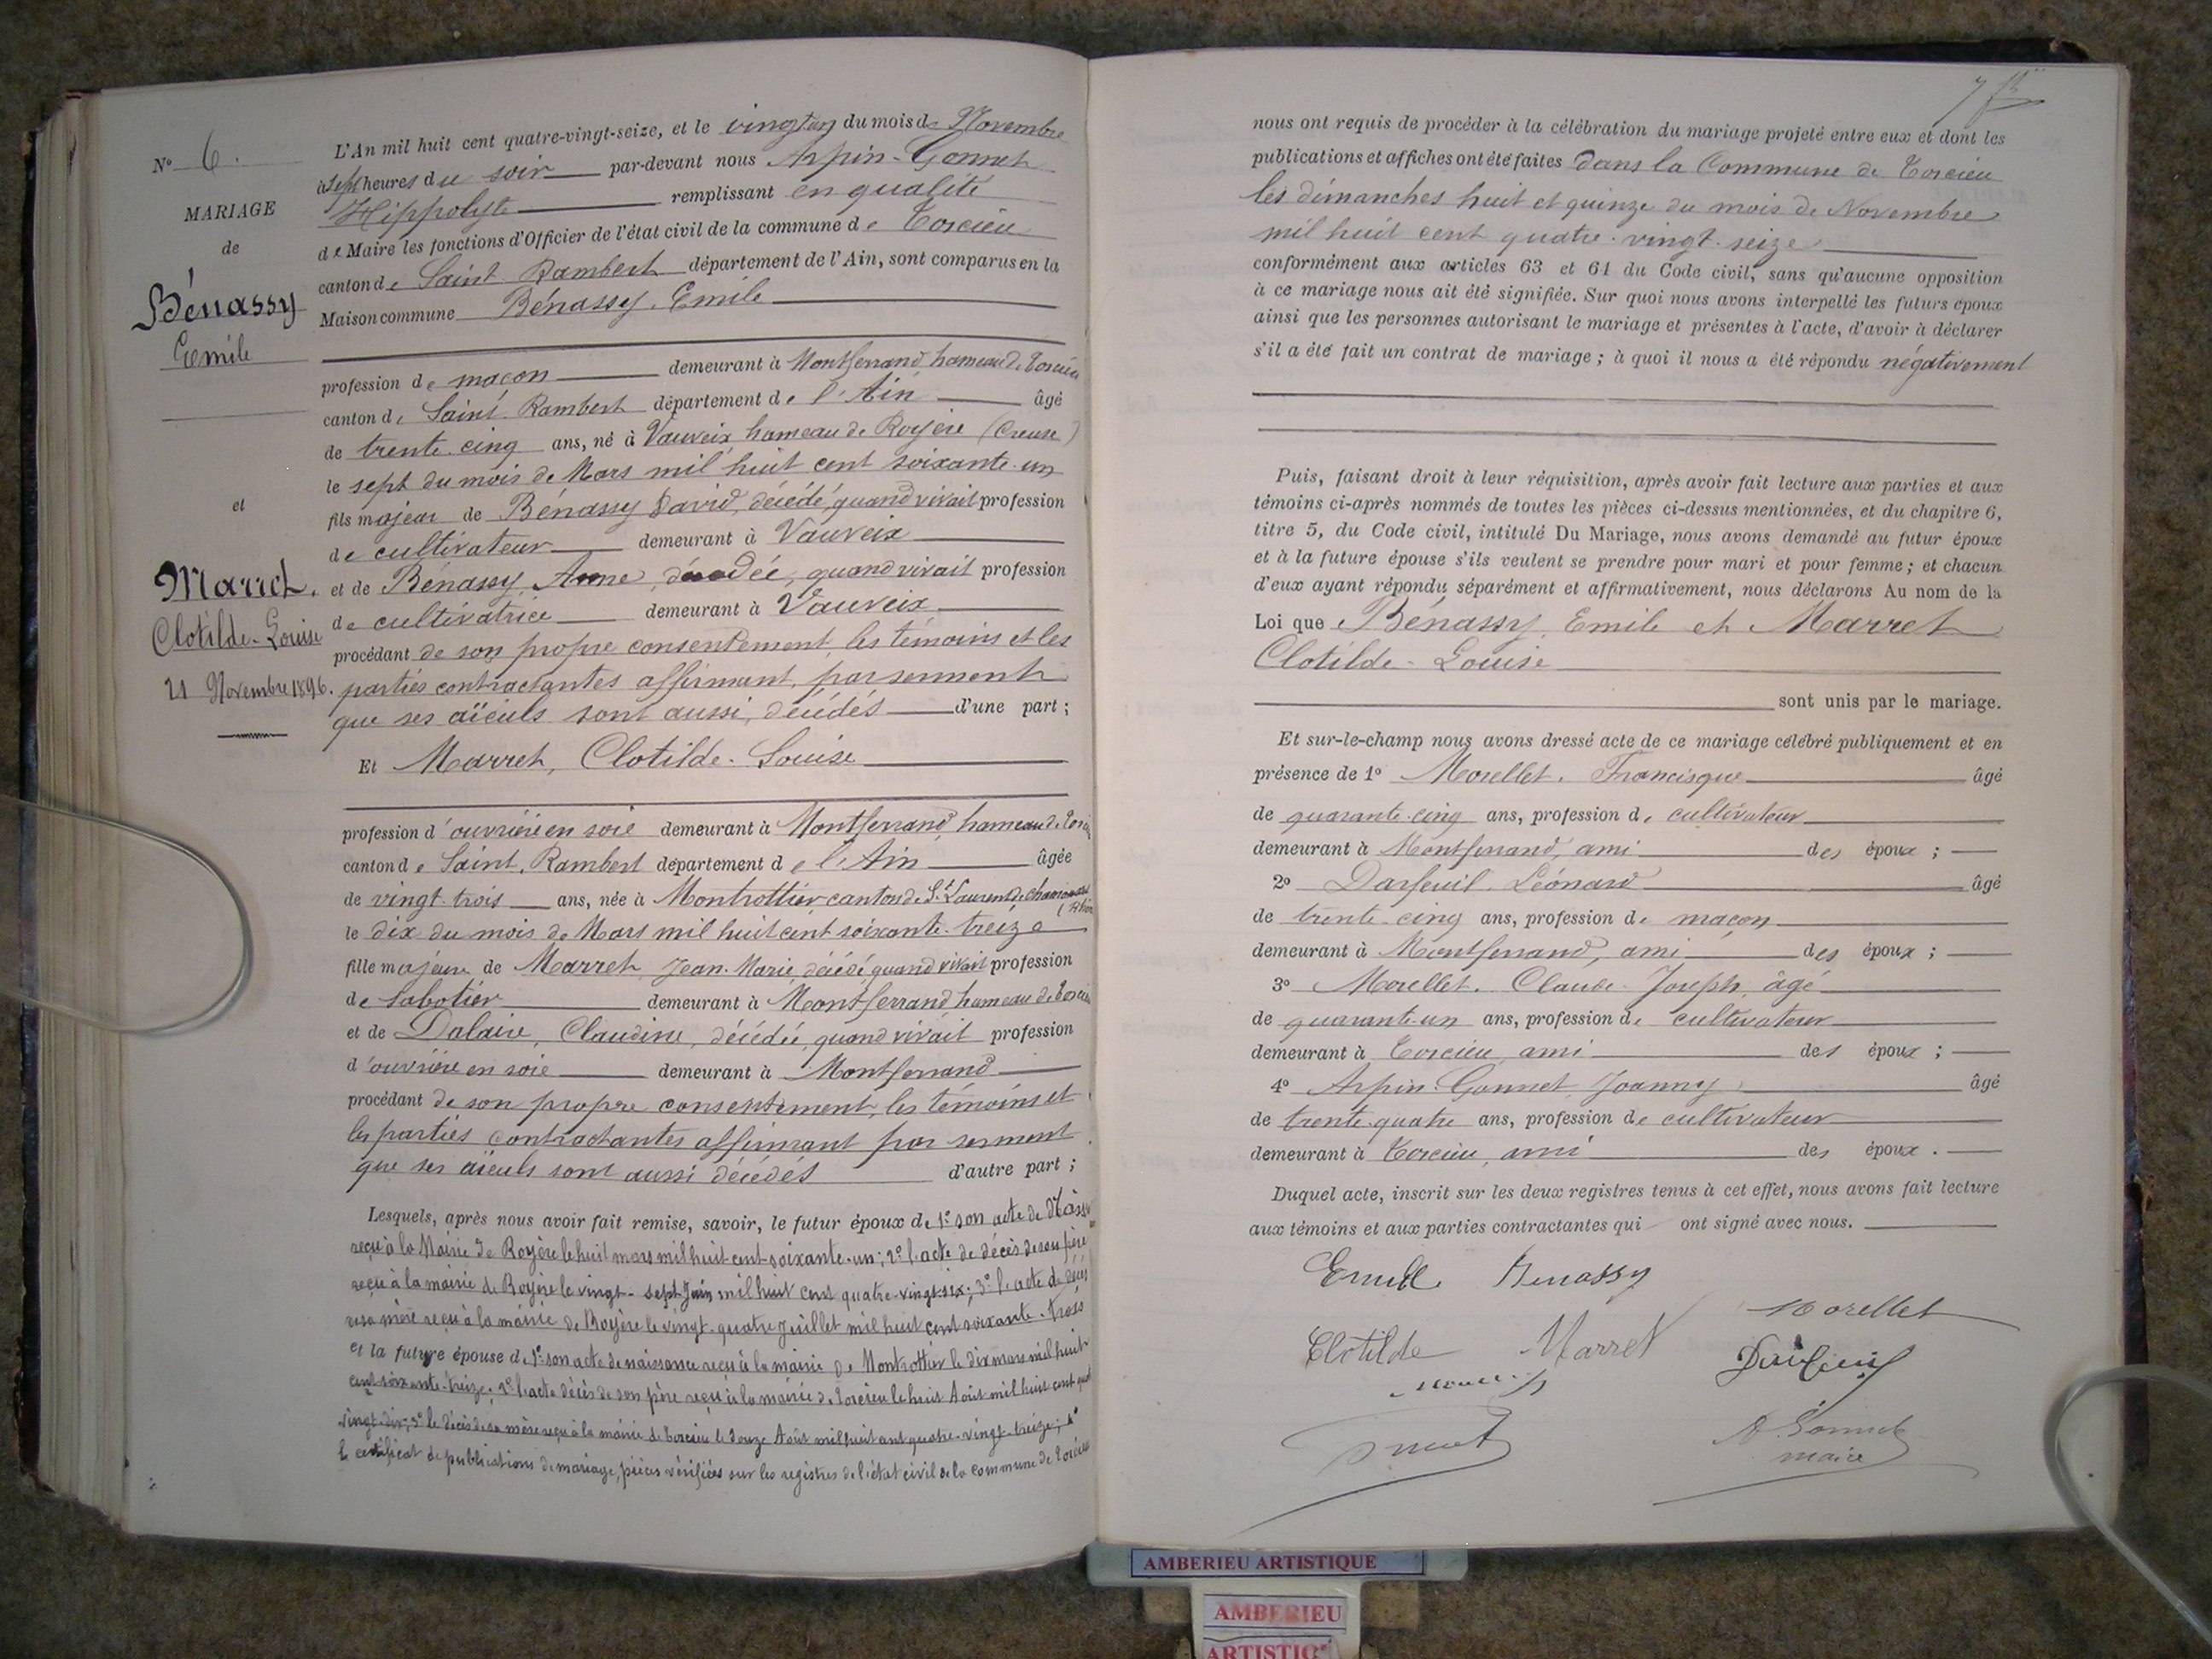 N° 6.
MARIAGE
de
Bénassy
Emile
et
Marret.
Clotilde-Louise
21 Novembre 1896.
L'An mil huit cent quatre-vingt-seize, et le vingt un du mois de Novembre
à sept heures du soir par-devant nous Arpin-Gonnet
Hippolyte remplissant en qualité
de Maire les fonctions d'Officier de l'état civil de la commune de Torcieu
canton de Saint Rambert département de l'Ain, sont comparus en la
Maison commune Bénassy, Emile
profession de maçon demeurant à Montferrand, hameau de Torcieu
canton de Saint Rambert département de l'Ain âgé
de trente-cinq ans, né à Vauveix hameau de Royère (Creuse)
le sept du mois de Mars mil huit cent soixante-un
fils majeur de Bénassy David, décédé, quand vivait profession
de cultivateur demeurant à Vauveix
et de Bénassy, Anne, décédée, quand vivait profession
de cultivatrice demeurant à Vauveix
procédant de son propre consentement, les témoins et les
parties contractantes affirmant, par serment
que ses aïeuls sont aussi, décédés d'une part ;
Et Marret, Clotilde-Louise
profession d'ouvrière en soie demeurant à Montferrand, hameau de Torcieu
canton de Saint, Rambert département de l'Ain âgée
de vingt-trois ans, née à Montrottier, canton de St Laurent de Chamousset
(Rhône
le dix du mois de Mars mil huit cent soixante-treize
fille majeure de Marret, Jean-Marie, décédé, quand vivait profession
de Sabotier demeurant à Montferrand, hameau de Torcieu
et de Dalaire, Claudine, décédée, quand vivait profession
d'ouvrière en soie demeurant à Montferrand
procédant de son propre consentement, les témoins et
les parties contractantes affirmant par serment
que ses aïeuls sont aussi décédés d'autre part ;
Lesquels, après nous avoir fait remise, savoir, le futur époux de 1° son acte de Naiss
reçu à la Mairie de Royère le huit mars mil huit cent soixante-un ; 2° l'acte de décès de son père
reçu à la mairie de Royère le vingt-sept Juin mil huit cent quatre-vingt-six ; 3° l'acte de décès
de sa mère reçu à la mairie de Royère le vingt-quatre Juillet mil huit cent soixante-trois
et la future épouse de 1° son acte de naissance reçu à la mairie de Montrottier le dix mars mil huit
cent soixante-treize ; 2° l'acte décès de son père reçu à la mairie de Torcieu le huit Août mil huit cent quat
vingt-dix ; 3° le décès de sa mère reçu à la mairie de Torcieu le douze Août mil huit cent quatre-vingt-treize ; 4°
le certificat de publications de mariage, pièces vérifiées sur les registres de l'état civil de la commune de Torcieu
nous ont requis de procéder à la célébration du mariage projeté entre eux et dont les
publications et affiches ont été faites dans la Commune de Torcieu
les dimanches huit et quinze du mois de Novembre
mil huit cent quatre-vingt-seize
conformément aux articles 63 et 64 du Code civil, sans qu'aucune opposition
à ce mariage nous ait été signifiée. Sur quoi nous avons interpellé les futurs époux
ainsi que les personnes autorisant le mariage et présentes à l'acte, d'avoir à déclarer
s'il a été fait un contrat de mariage ; à quoi il nous a été répondu négativement
Puis, faisant droit à leur réquisition, après avoir fait lecture aux parties et aux
témoins ci-après nommés de toutes les pièces ci-dessus mentionnées, et du chapitre 6,
titre 5, du Code civil, intitulé Du Mariage, nous avons demandé au futur époux
et à la future épouse s'ils veulent se prendre pour mari et pour femme ; et chacun
d'eux ayant répondu séparément et affirmativement, nous déclarons Au nom de la
Loi que Bénassy, Emile et Marret
Clotilde-Louise
sont unis par le mariage.
Et sur-le-champ nous avons dressé acte de ce mariage célébré publiquement et en
présence de 1° Morellet, Francisque âgé
de quarante-cinq ans, profession de cultivateur
demeurant à Montferrand, ami des époux ;
2° Darfeuil, Léonard âgé
de trente-cinq ans, profession de maçon
demeurant à Montferrand, ami des époux ;
3° Morellet, Claude-Joseph, âgé
de quarante-un ans, profession de cultivateur
demeurant à Torcieu, ami des époux ;
4° Arpin-Gonnet, Joanny âgé
de trente-quatre ans, profession de cultivateur
demeurant à Torcieu, ami des époux.
Duquel acte, inscrit sur les deux registres tenus à cet effet, nous avons fait lecture
aux témoins et aux parties contractantes qui ont signé avec nous.
Emile Benassy
Morellet
Clotilde Marret
A. Gonnet
maire
AMBERIEU ARTISTIQUE
AMBERIEU
ARTISTIQ